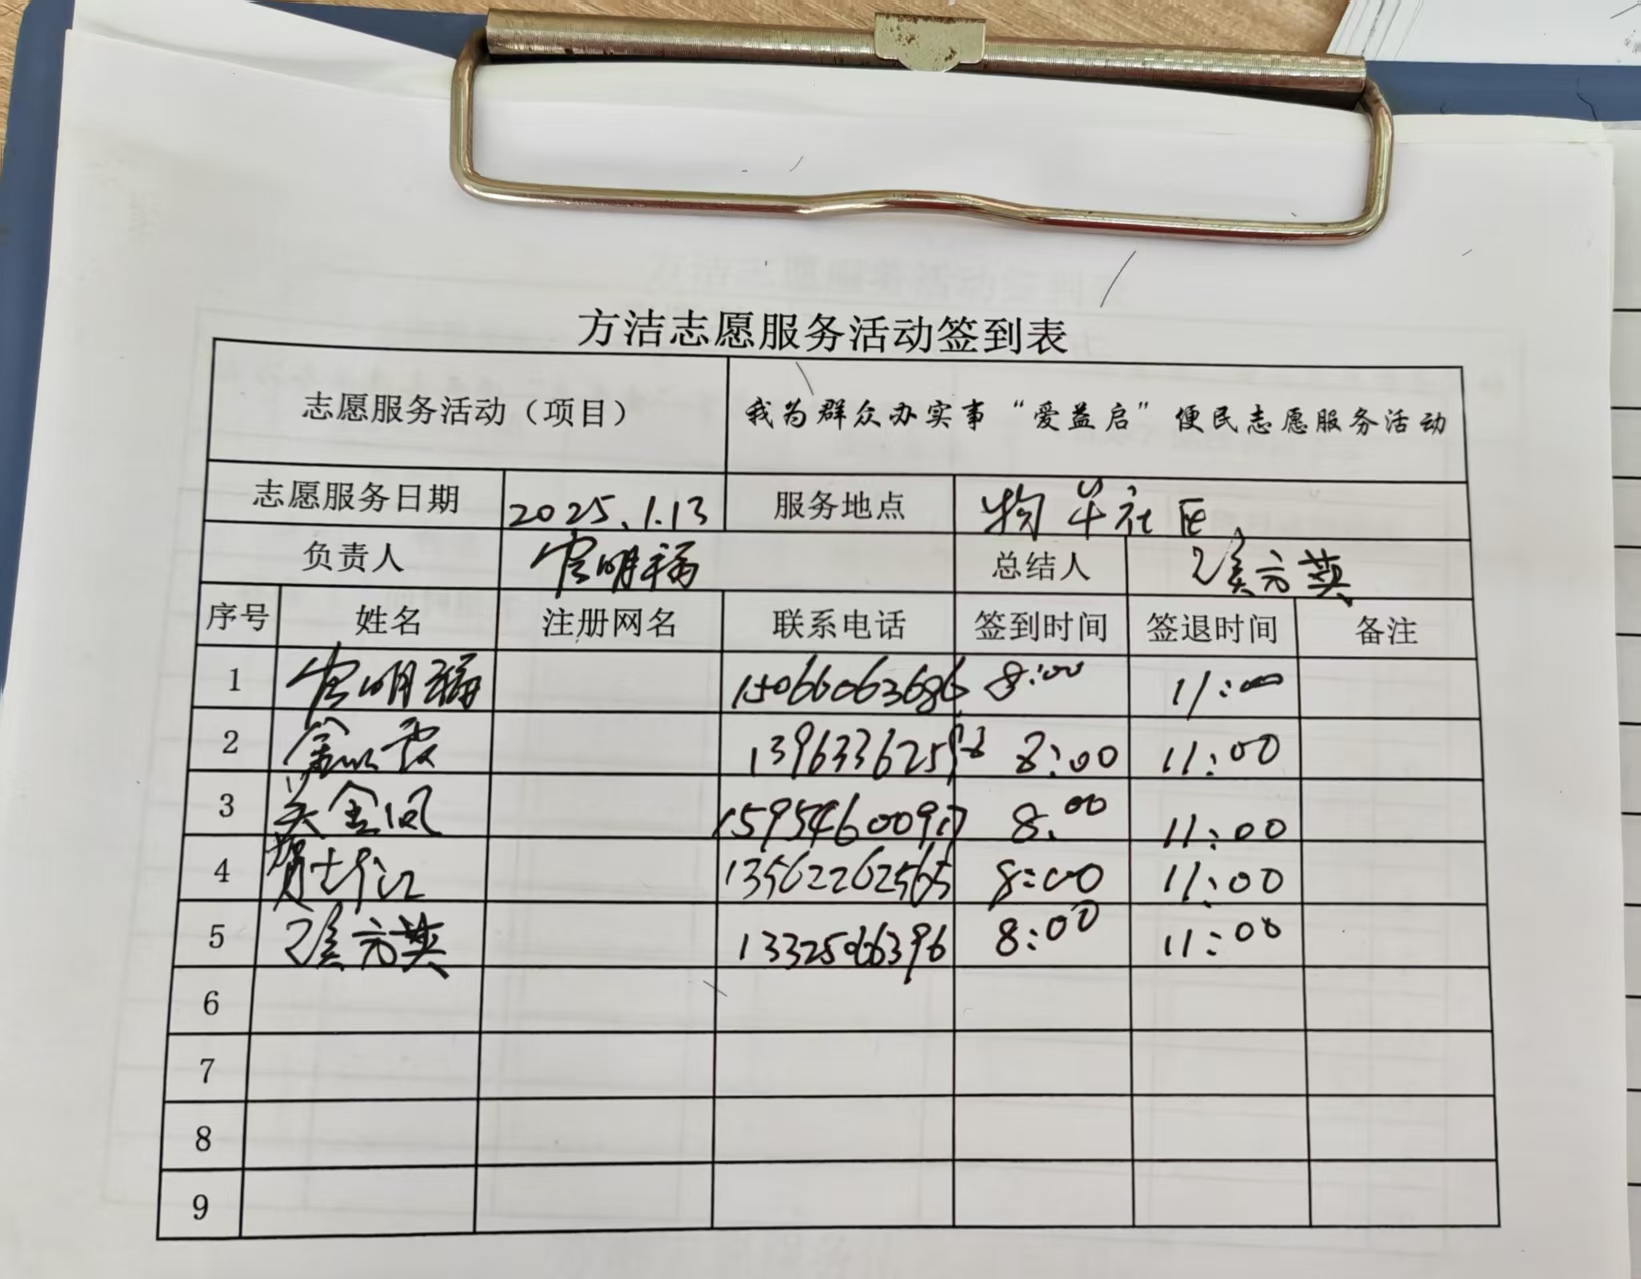 方洁志愿服务活动签到表
志愿服务活动（项目） 我为群众办实事“爱益启”便民志愿服务活动
志愿服务日期 2025.1.13 服务地点 社区
负责人 明福 总结人 方英
序号 姓名 注册网名 联系电话 签到时间 签退时间 备注
1 明福 15066063686 8:00 11:00
2 8:00 11:00
3 吴金凤 8:00 11:00
4 贾士江 13562262565 8:00 11:00
5 方英 13325066396 8:00 11:00
6
7
8
9